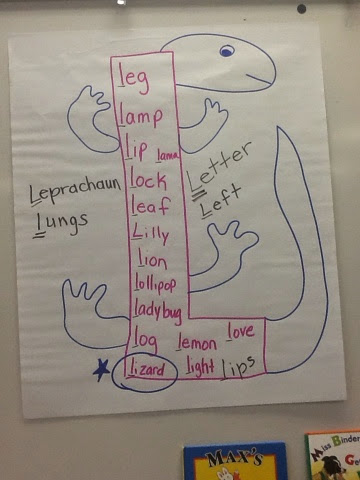 leg
lamp
lip lama
Leprachaun
lungs
Letter
Left
lock
leaf
Lilly
lion
lollipop
ladybug
log lemon love
lizard light lips
MAX'S
Miss Binder
Ge